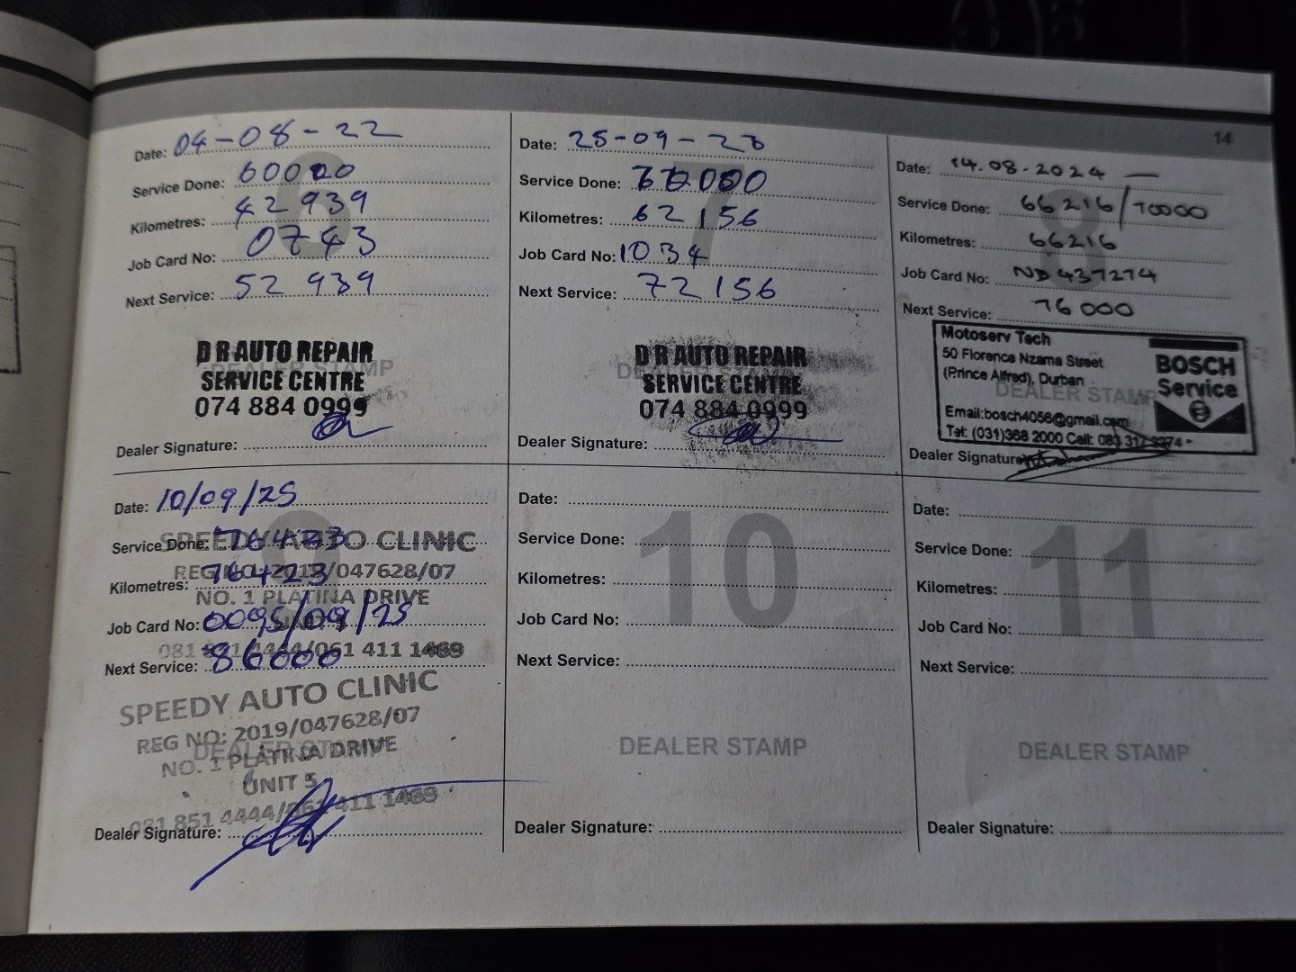 14
Date: 04-08-22
Service Done: 60000
Kilometres: 42 939
Job Card No: 0743
Next Service: 52 939
D R AUTO REPAIR
SERVICE CENTRE
074 884 0999
Dealer Signature:
7
Date: 25-09-23
Service Done: 70000
Kilometres: 62 156
Job Card No: 1034
Next Service: 72 156
DEALER STAMP
D R AUTO REPAIR
SERVICE CENTRE
074 884 0999
Dealer Signature:
8
Date: 14.08.2024 —
Service Done: 66216/70000
Kilometres: 66216
Job Card No: ND 437274
Next Service: 76 000
Motoserv Tech
50 Florence Nzama Street
(Prince Alfred), Durban
BOSCH
Service
DEALER STAMP
Email:bosch4056@gmail.com
Tel: (031)368 2000 Cell:
Dealer Signature
Date: 10/09/25
Service Done: 76423
SPEEDY AUTO CLINIC
Kilometres: 76423
REG NO: 2019/047628/07
NO. 1 PLATINA DRIVE
Job Card No: 0095/09/25
Next Service: 86000
081 851 4444/061 411 1469
SPEEDY AUTO CLINIC
REG NO: 2019/047628/07
DEALER STAMP
NO. 1 PLATINA DRIVE
UNIT 5
081 851 4444/061 411 1469
Dealer Signature:
10
Date:
Service Done:
Kilometres:
Job Card No:
Next Service:
DEALER STAMP
Dealer Signature:
11
Date:
Service Done:
Kilometres:
Job Card No:
Next Service:
DEALER STAMP
Dealer Signature: